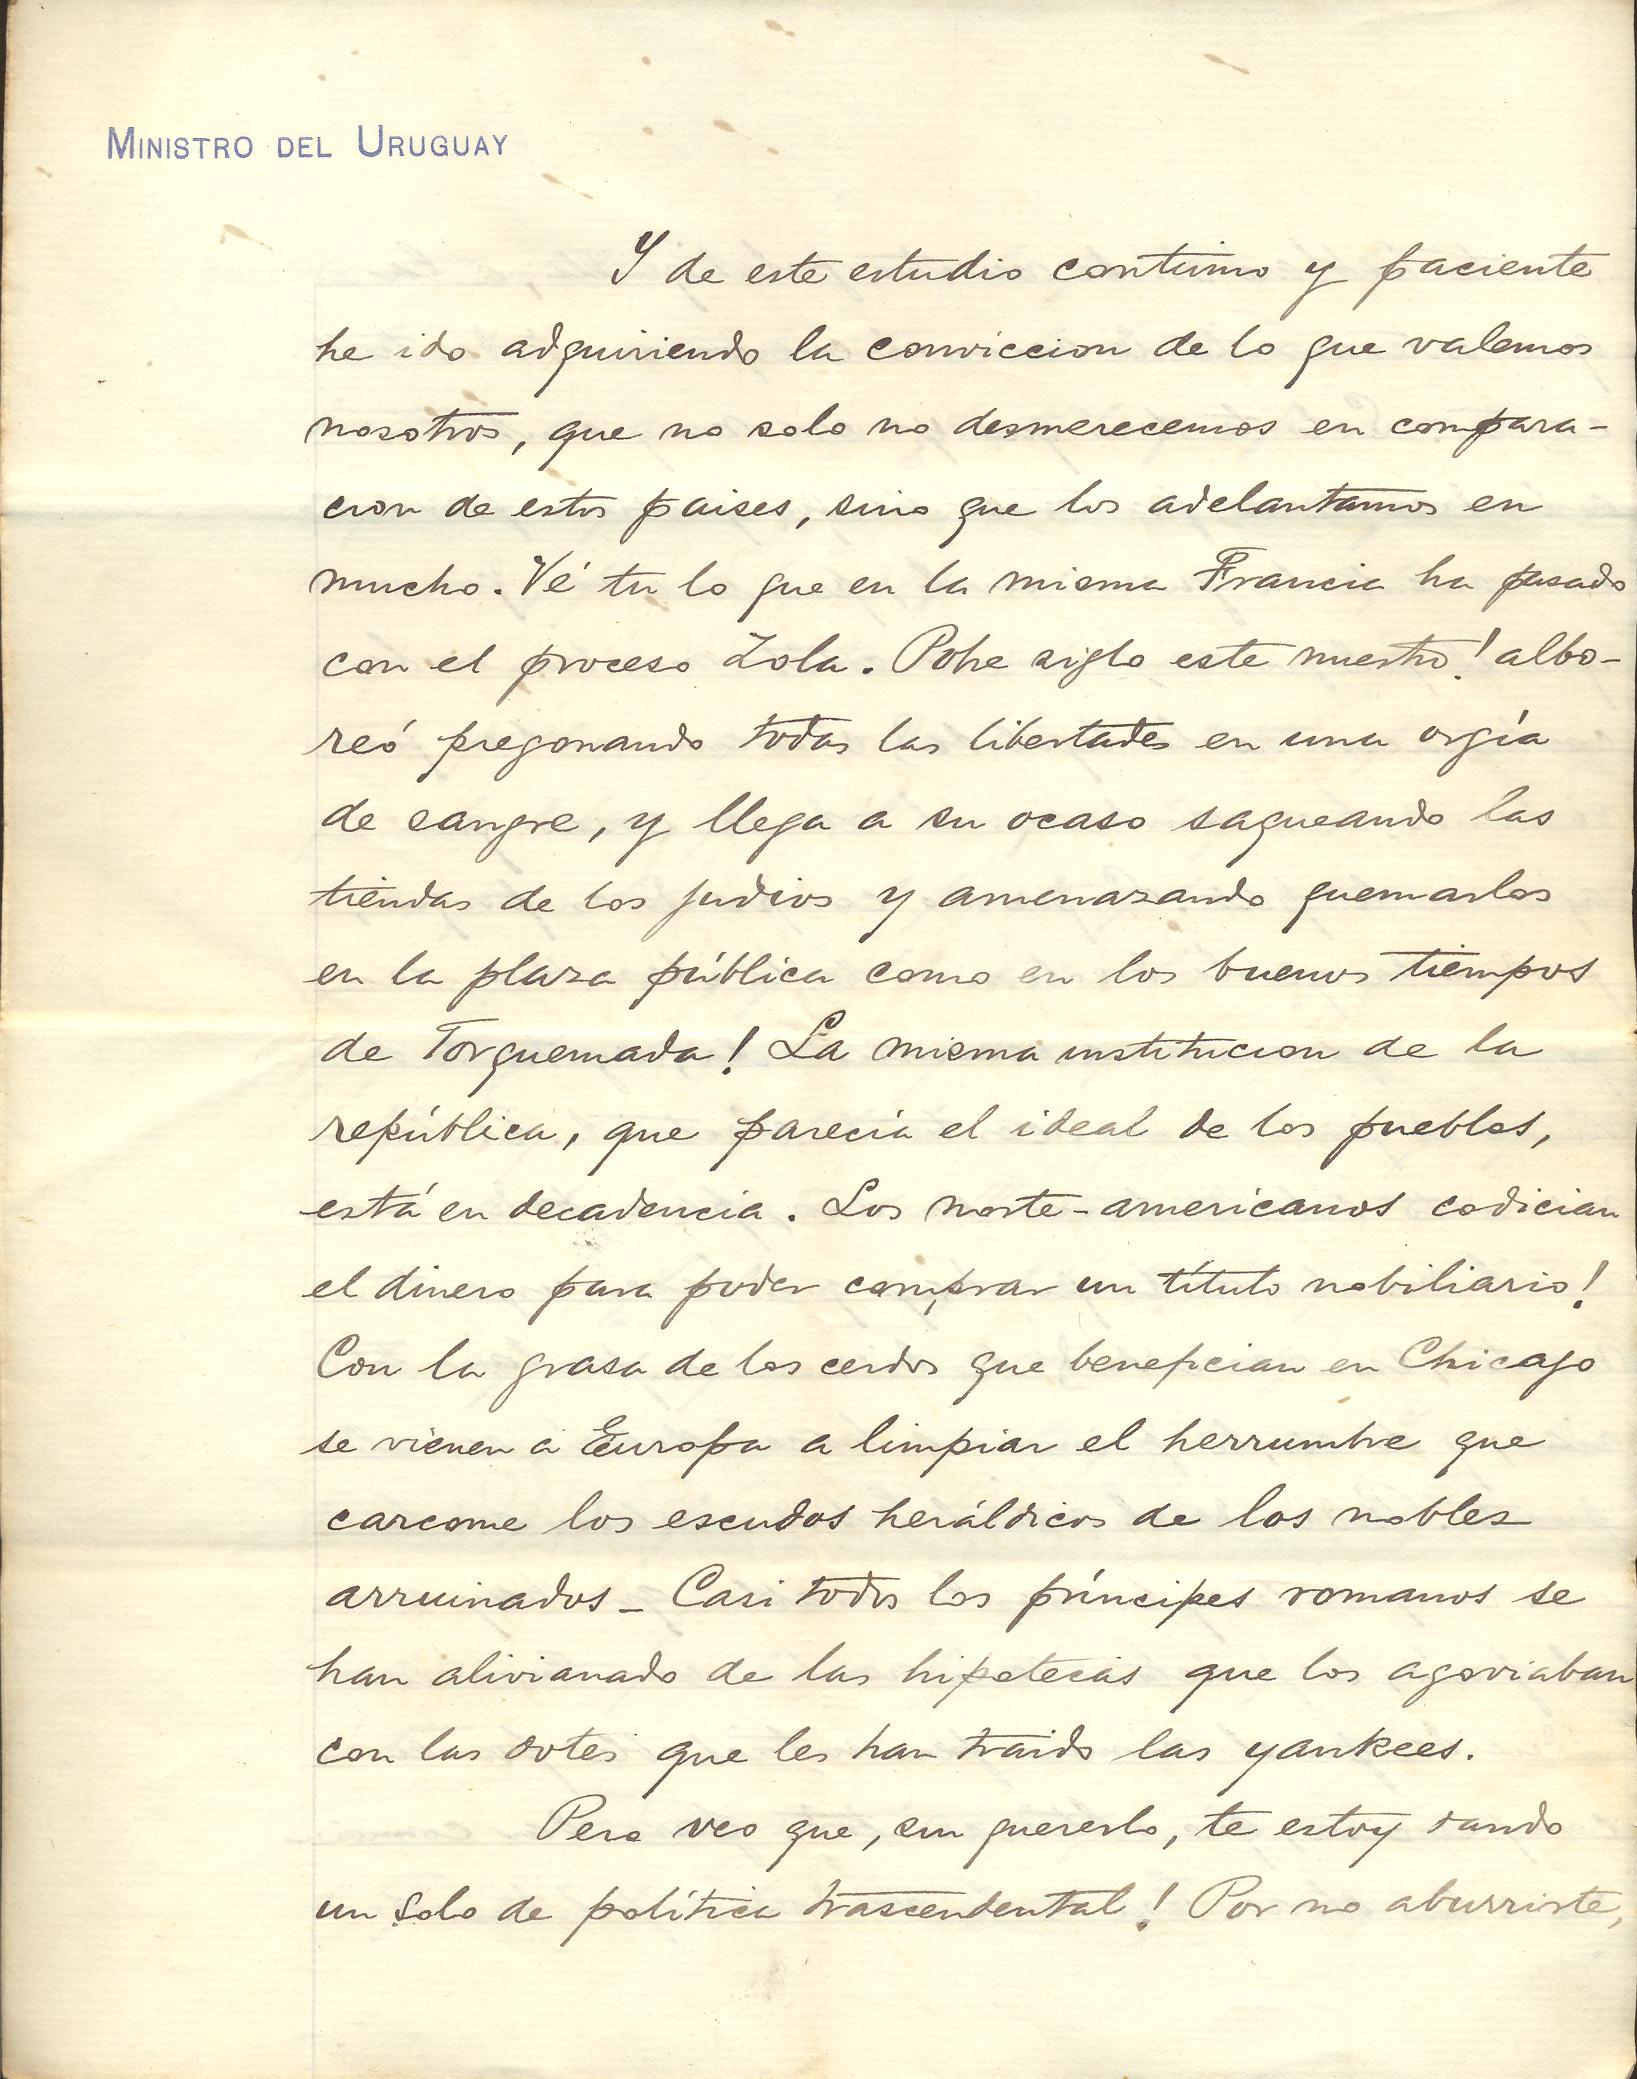 MINISTRO DEL URUGUAY
Y de este estudio contínuo y paciente
he ido adquiriendo la conviccion de lo que valemos
nosotros, que no solo no desmerecemos en compara-
cion de estos paises, sino que los adelantamos en
mucho. Vé tu lo que en la misma Francia ha pasado
con el proceso Zola. Pobre siglo este nuestro! albo-
reó pregonando todas las libertades en una orgía
de sangre, y llega a su ocaso saqueando las
tiendas de los judios y amenazando quemarlos
en la plaza pública como en los buenos tiempos
de Torquemada! La misma institucion de la
república, que parecía el ideal de los pueblos,
está en decadencia. Los norte-americanos codician
el dinero para poder comprar un título nobiliario!
Con la grasa de los cerdos que benefician en Chicago
se vienen a Europa a limpiar el herrumbre que
carcome los escudos heráldicos de los nobles
arruinados - Casi todos los príncipes romanos se
han alivianado de las hipotecas que los agoviaban
con las dotes que les han traido las yankees.
Pero veo que, sin quererlo, te estoy dando
un solo de política trascendental! Por no aburrirte,